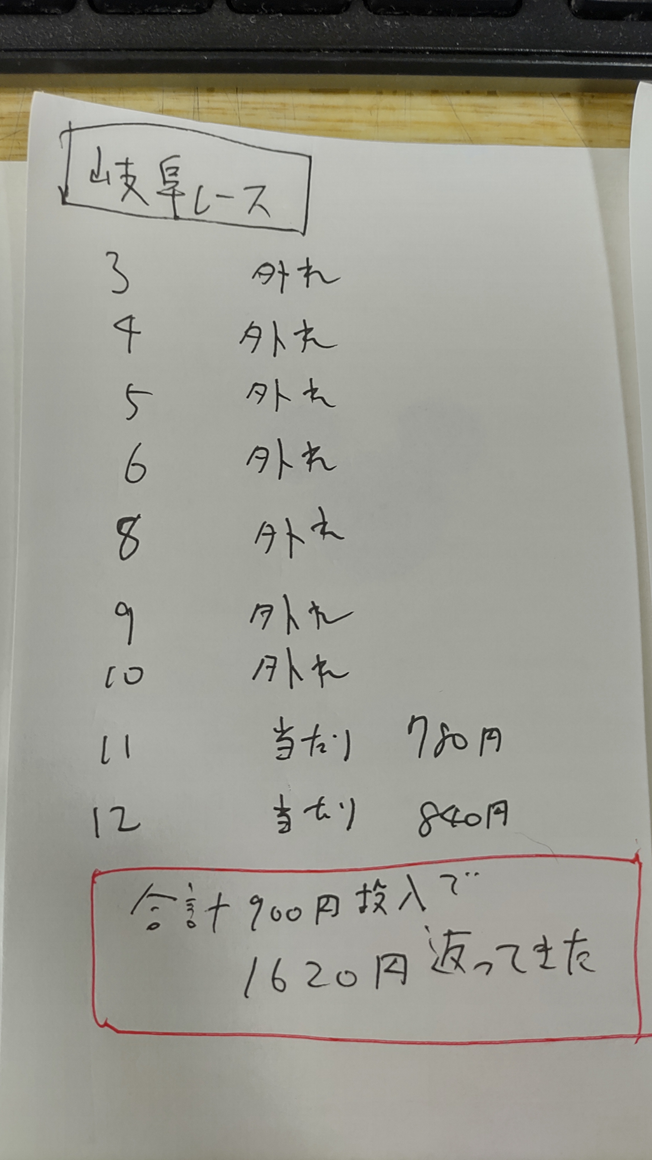 岐阜レース
3 外れ
4 外れ
5 外れ
6 外れ
8 外れ
9 外れ
10 外れ
11 当たり 780円
12 当たり 840円
合計900円投入で
1620円返ってきた